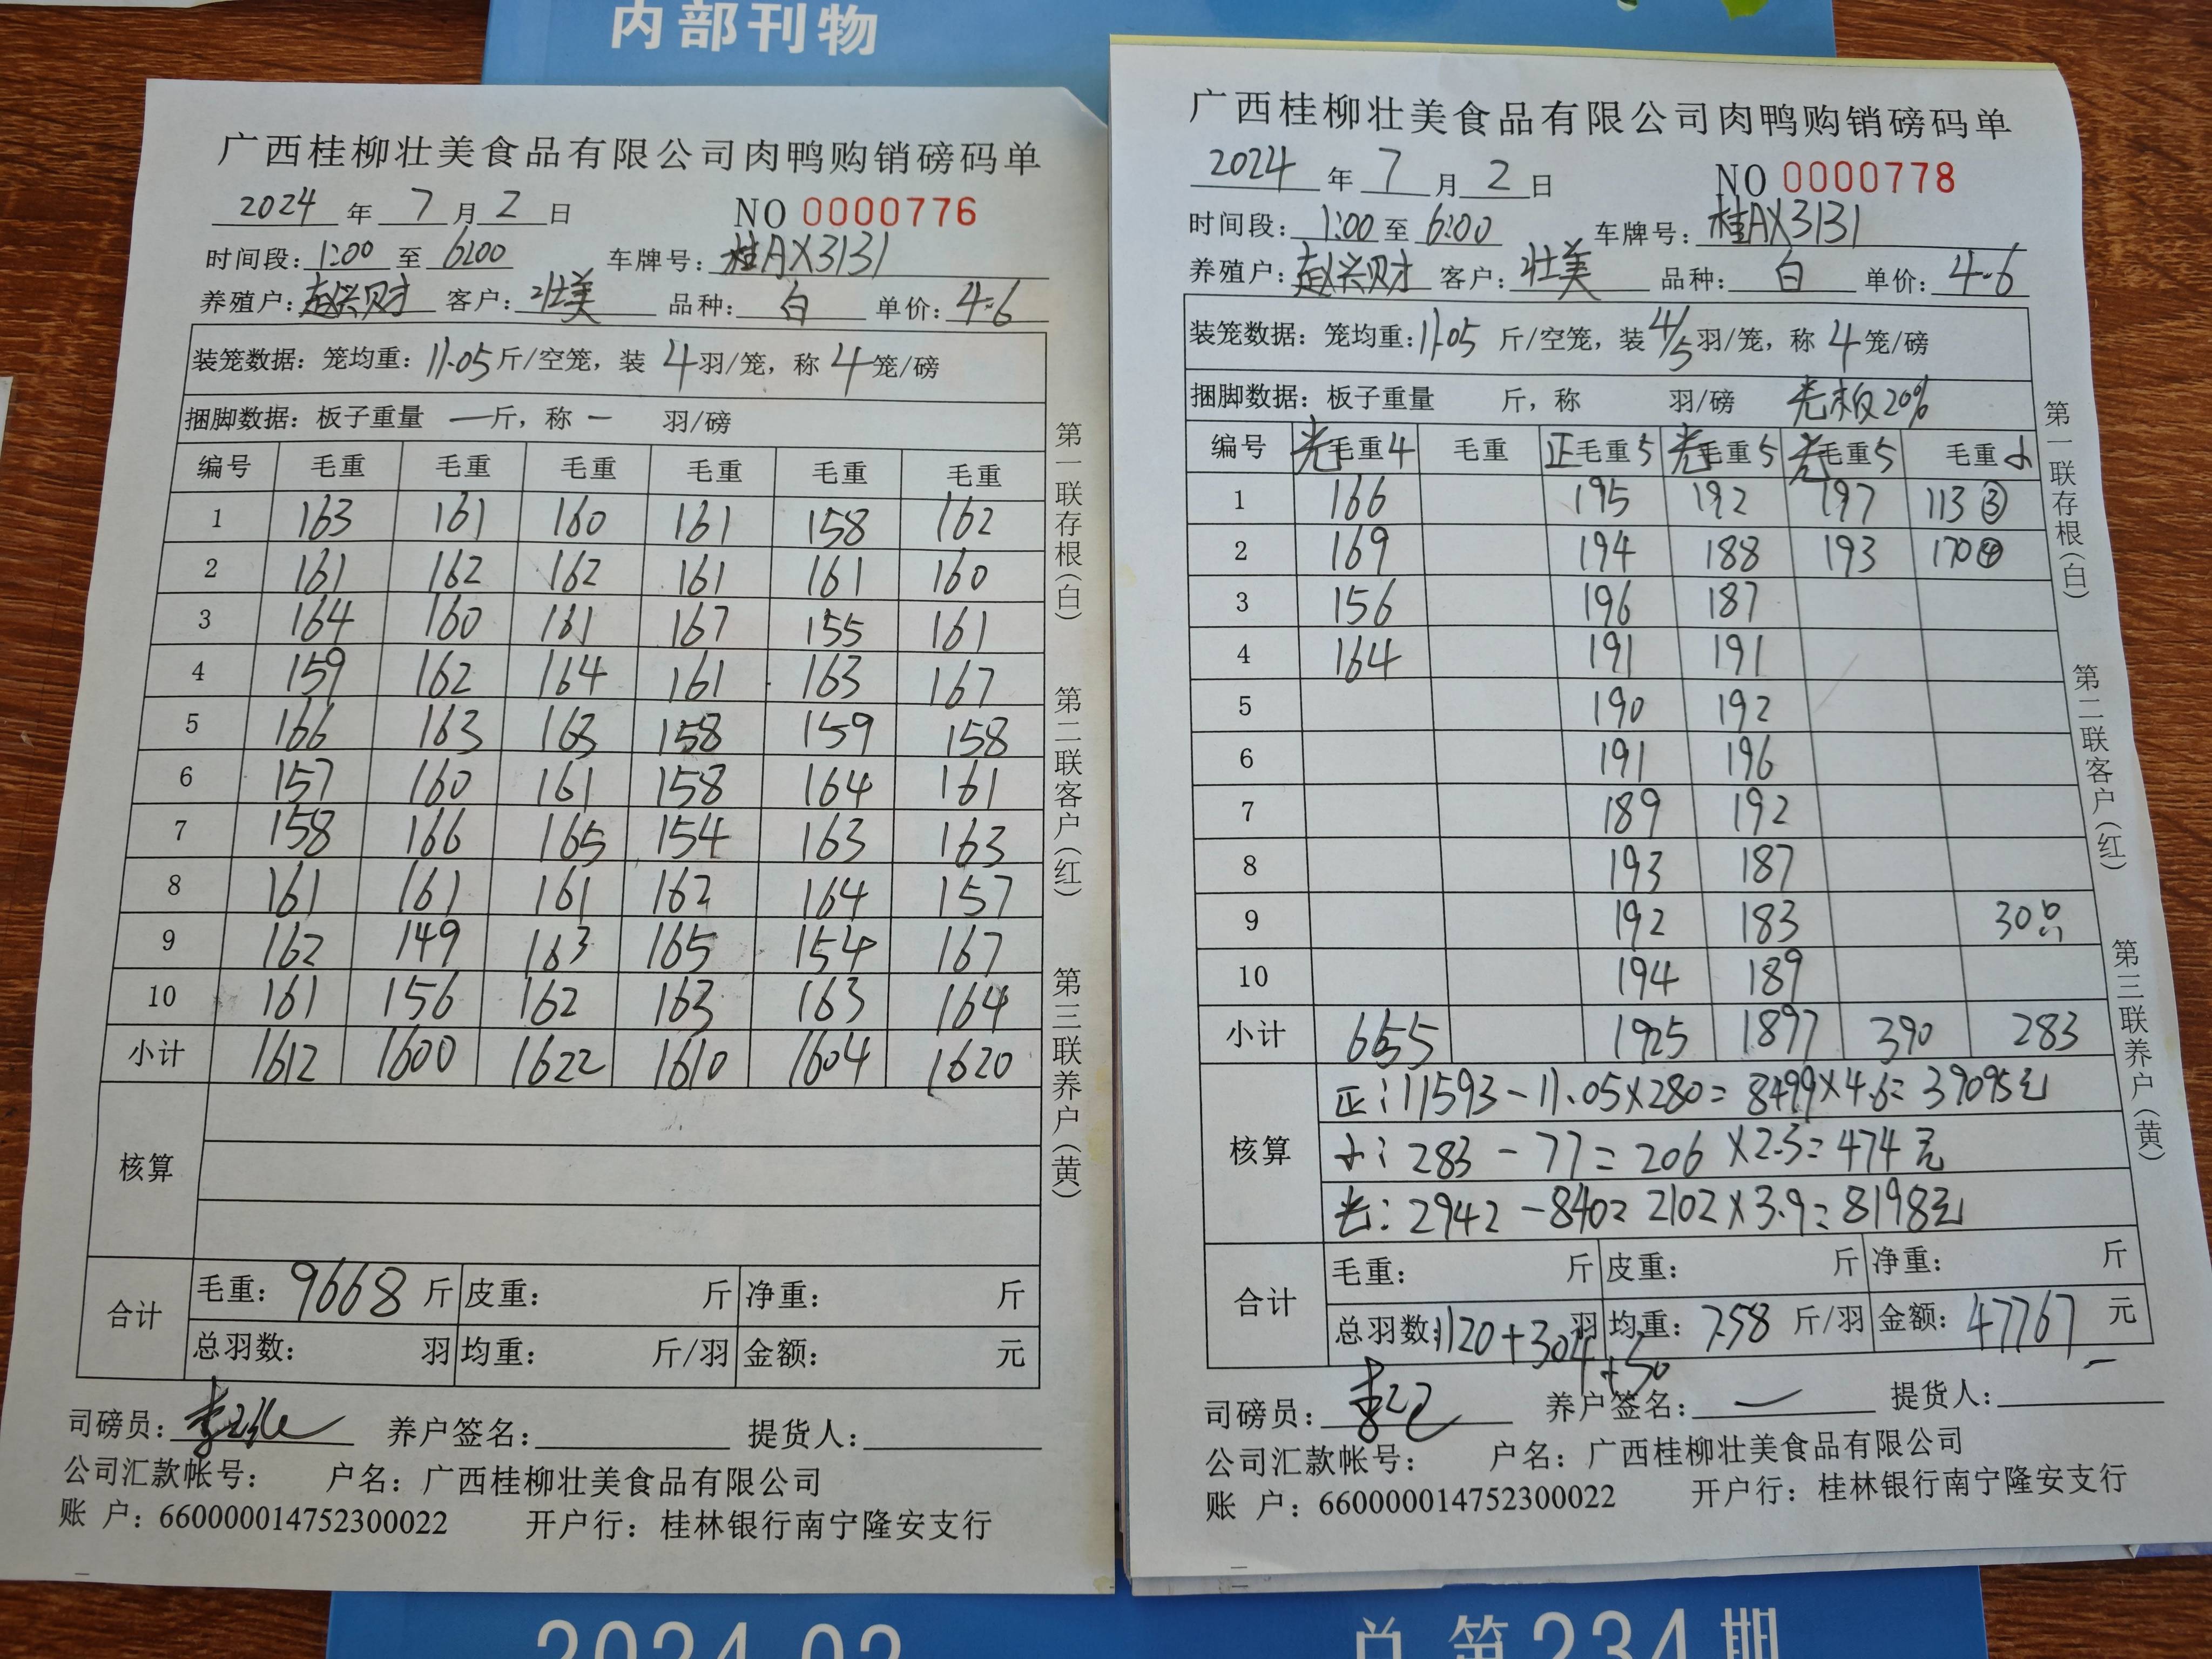 内部刊物
广西桂柳壮美食品有限公司肉鸭购销磅码单
2024 年 7 月 2 日 NO 0000776
时间段: 1:00 至 6:00 车牌号: 桂AX3131
养殖户: 赵兴财 客户: 壮美 品种: 白 单价: 4.6
装笼数据: 笼均重: 11.05 斤/空笼, 装 4 羽/笼, 称 4 笼/磅
捆脚数据: 板子重量 一 斤, 称 一 羽/磅
编号 毛重 毛重 毛重 毛重 毛重 毛重
1 163 161 160 161 158 162
2 161 162 162 161 161 160
3 164 160 161 167 155 161
4 159 162 164 161 163 167
5 166 163 163 158 159 158
6 157 160 161 158 164 161
7 158 166 165 154 163 163
8 161 161 161 162 164 157
9 162 149 163 165 154 167
10 161 156 162 163 163 164
小计 1612 1600 1622 1610 1604 1620
核算
合计
毛重: 9668 斤 皮重: 斤 净重: 斤
总羽数: 羽 均重: 斤/羽 金额: 元
司磅员: 养户签名: 提货人:
公司汇款帐号: 户名: 广西桂柳壮美食品有限公司
账 户: 660000014752300022 开户行: 桂林银行南宁隆安支行
第一联存根(白) 第二联客户(红) 第三联养户(黄)
广西桂柳壮美食品有限公司肉鸭购销磅码单
2024 年 7 月 2 日 NO 0000778
时间段: 1:00 至 6:00 车牌号: 桂AX3131
养殖户: 赵兴财 客户: 壮美 品种: 白 单价: 4.6
装笼数据: 笼均重: 11.05 斤/空笼, 装 4/5 羽/笼, 称 4 笼/磅
捆脚数据: 板子重量 斤, 称 羽/磅 光板20%
编号 光毛重4 毛重 正毛重5 光毛重5 光毛重5 毛重小
1 166 195 192 197 113③
2 169 194 188 193 170④
3 156 196 187
4 164 191 191
5 190 192
6 191 196
7 189 192
8 193 187
9 192 183 30只
10 194 189
小计 655 1925 1897 390 283
核算
正: 11593-11.05×280=8499×4.6=39095元
小: 283-77=206×2.3=474元
光: 2942-840=2102×3.9=8198元
合计
毛重: 斤 皮重: 斤 净重: 斤
总羽数: 1120+304+50 羽 均重: 7.58 斤/羽 金额: 47767 元
司磅员: 养户签名: 提货人:
公司汇款帐号: 户名: 广西桂柳壮美食品有限公司
账 户: 660000014752300022 开户行: 桂林银行南宁隆安支行
第一联存根(白) 第二联客户(红) 第三联养户(黄)
2024.02 总第234期